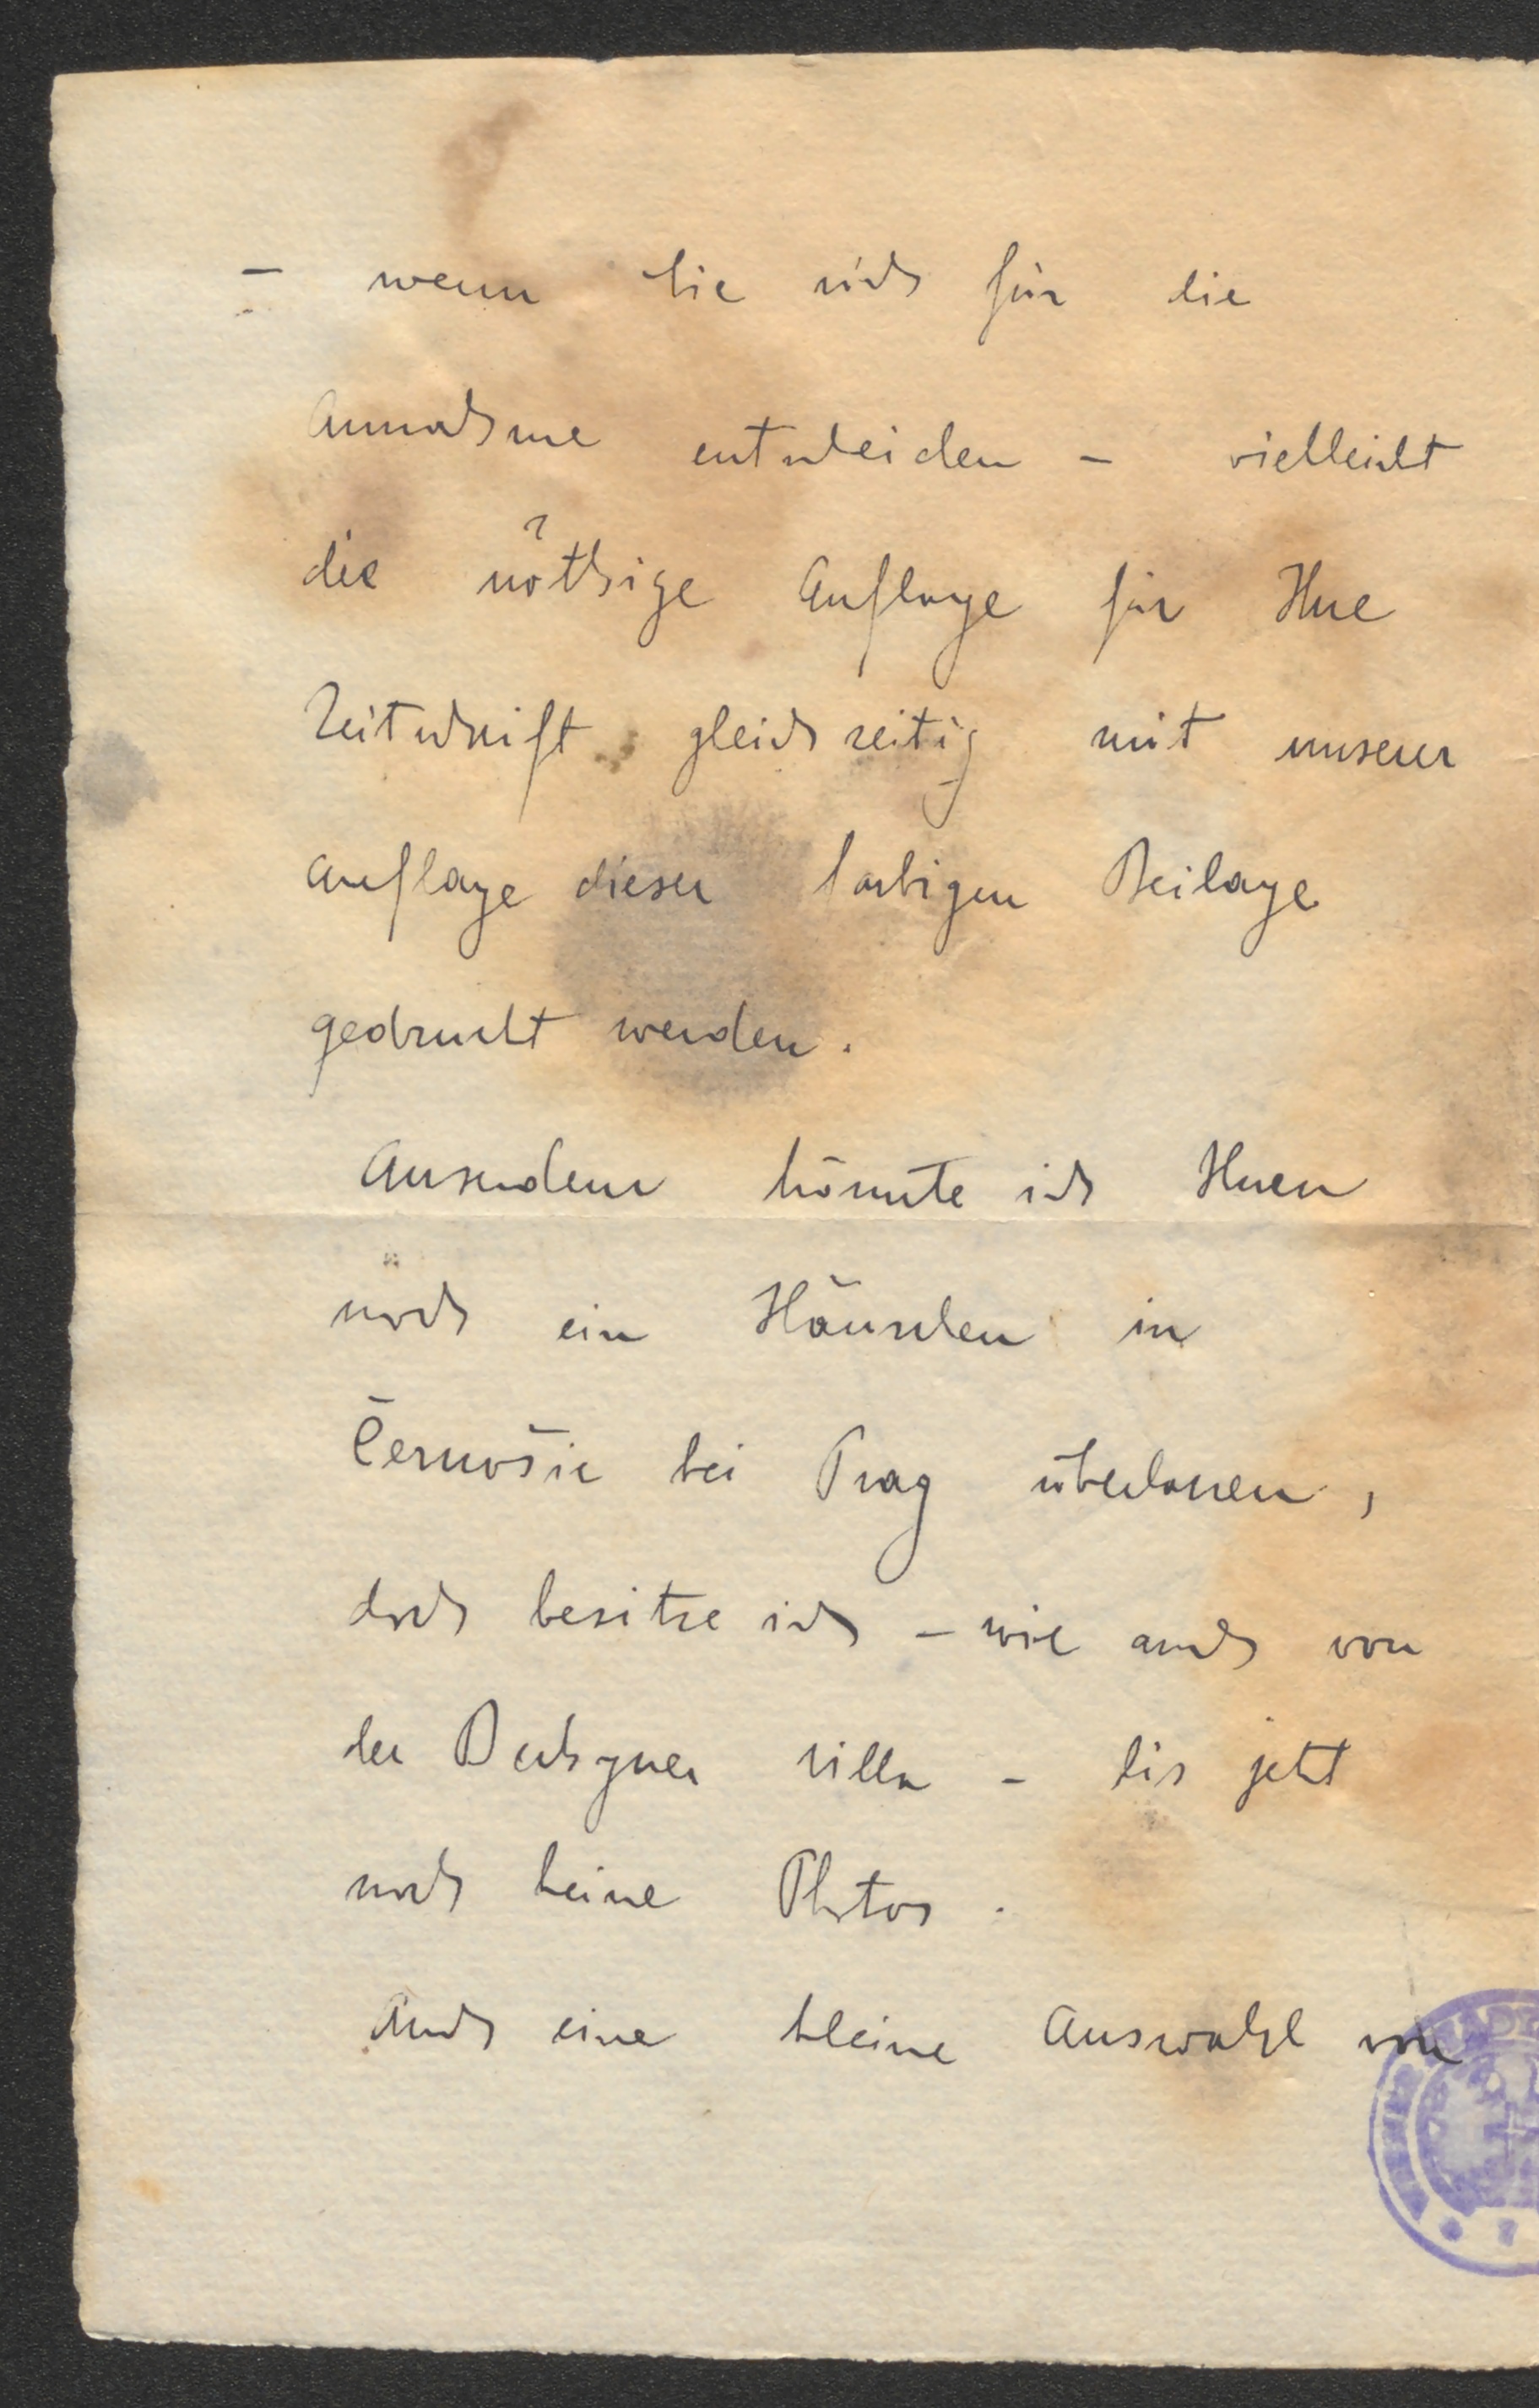 – wenn Sie sich für die
Annahme entscheiden – vielleicht
die nöthige Auflage für Ihre
Zeitschrift gleichzeitig mit unserer
Auflage dieser farbigen Beilage
gedruckt werden.
Ausserdem könnte ich Ihnen
noch ein Häuschen in
Černošic bei Prag überlassen,
doch besitze ich – wie auch von
der Villa – bis jetzt
noch keine Photos.
Auch eine kleine Auswahl von